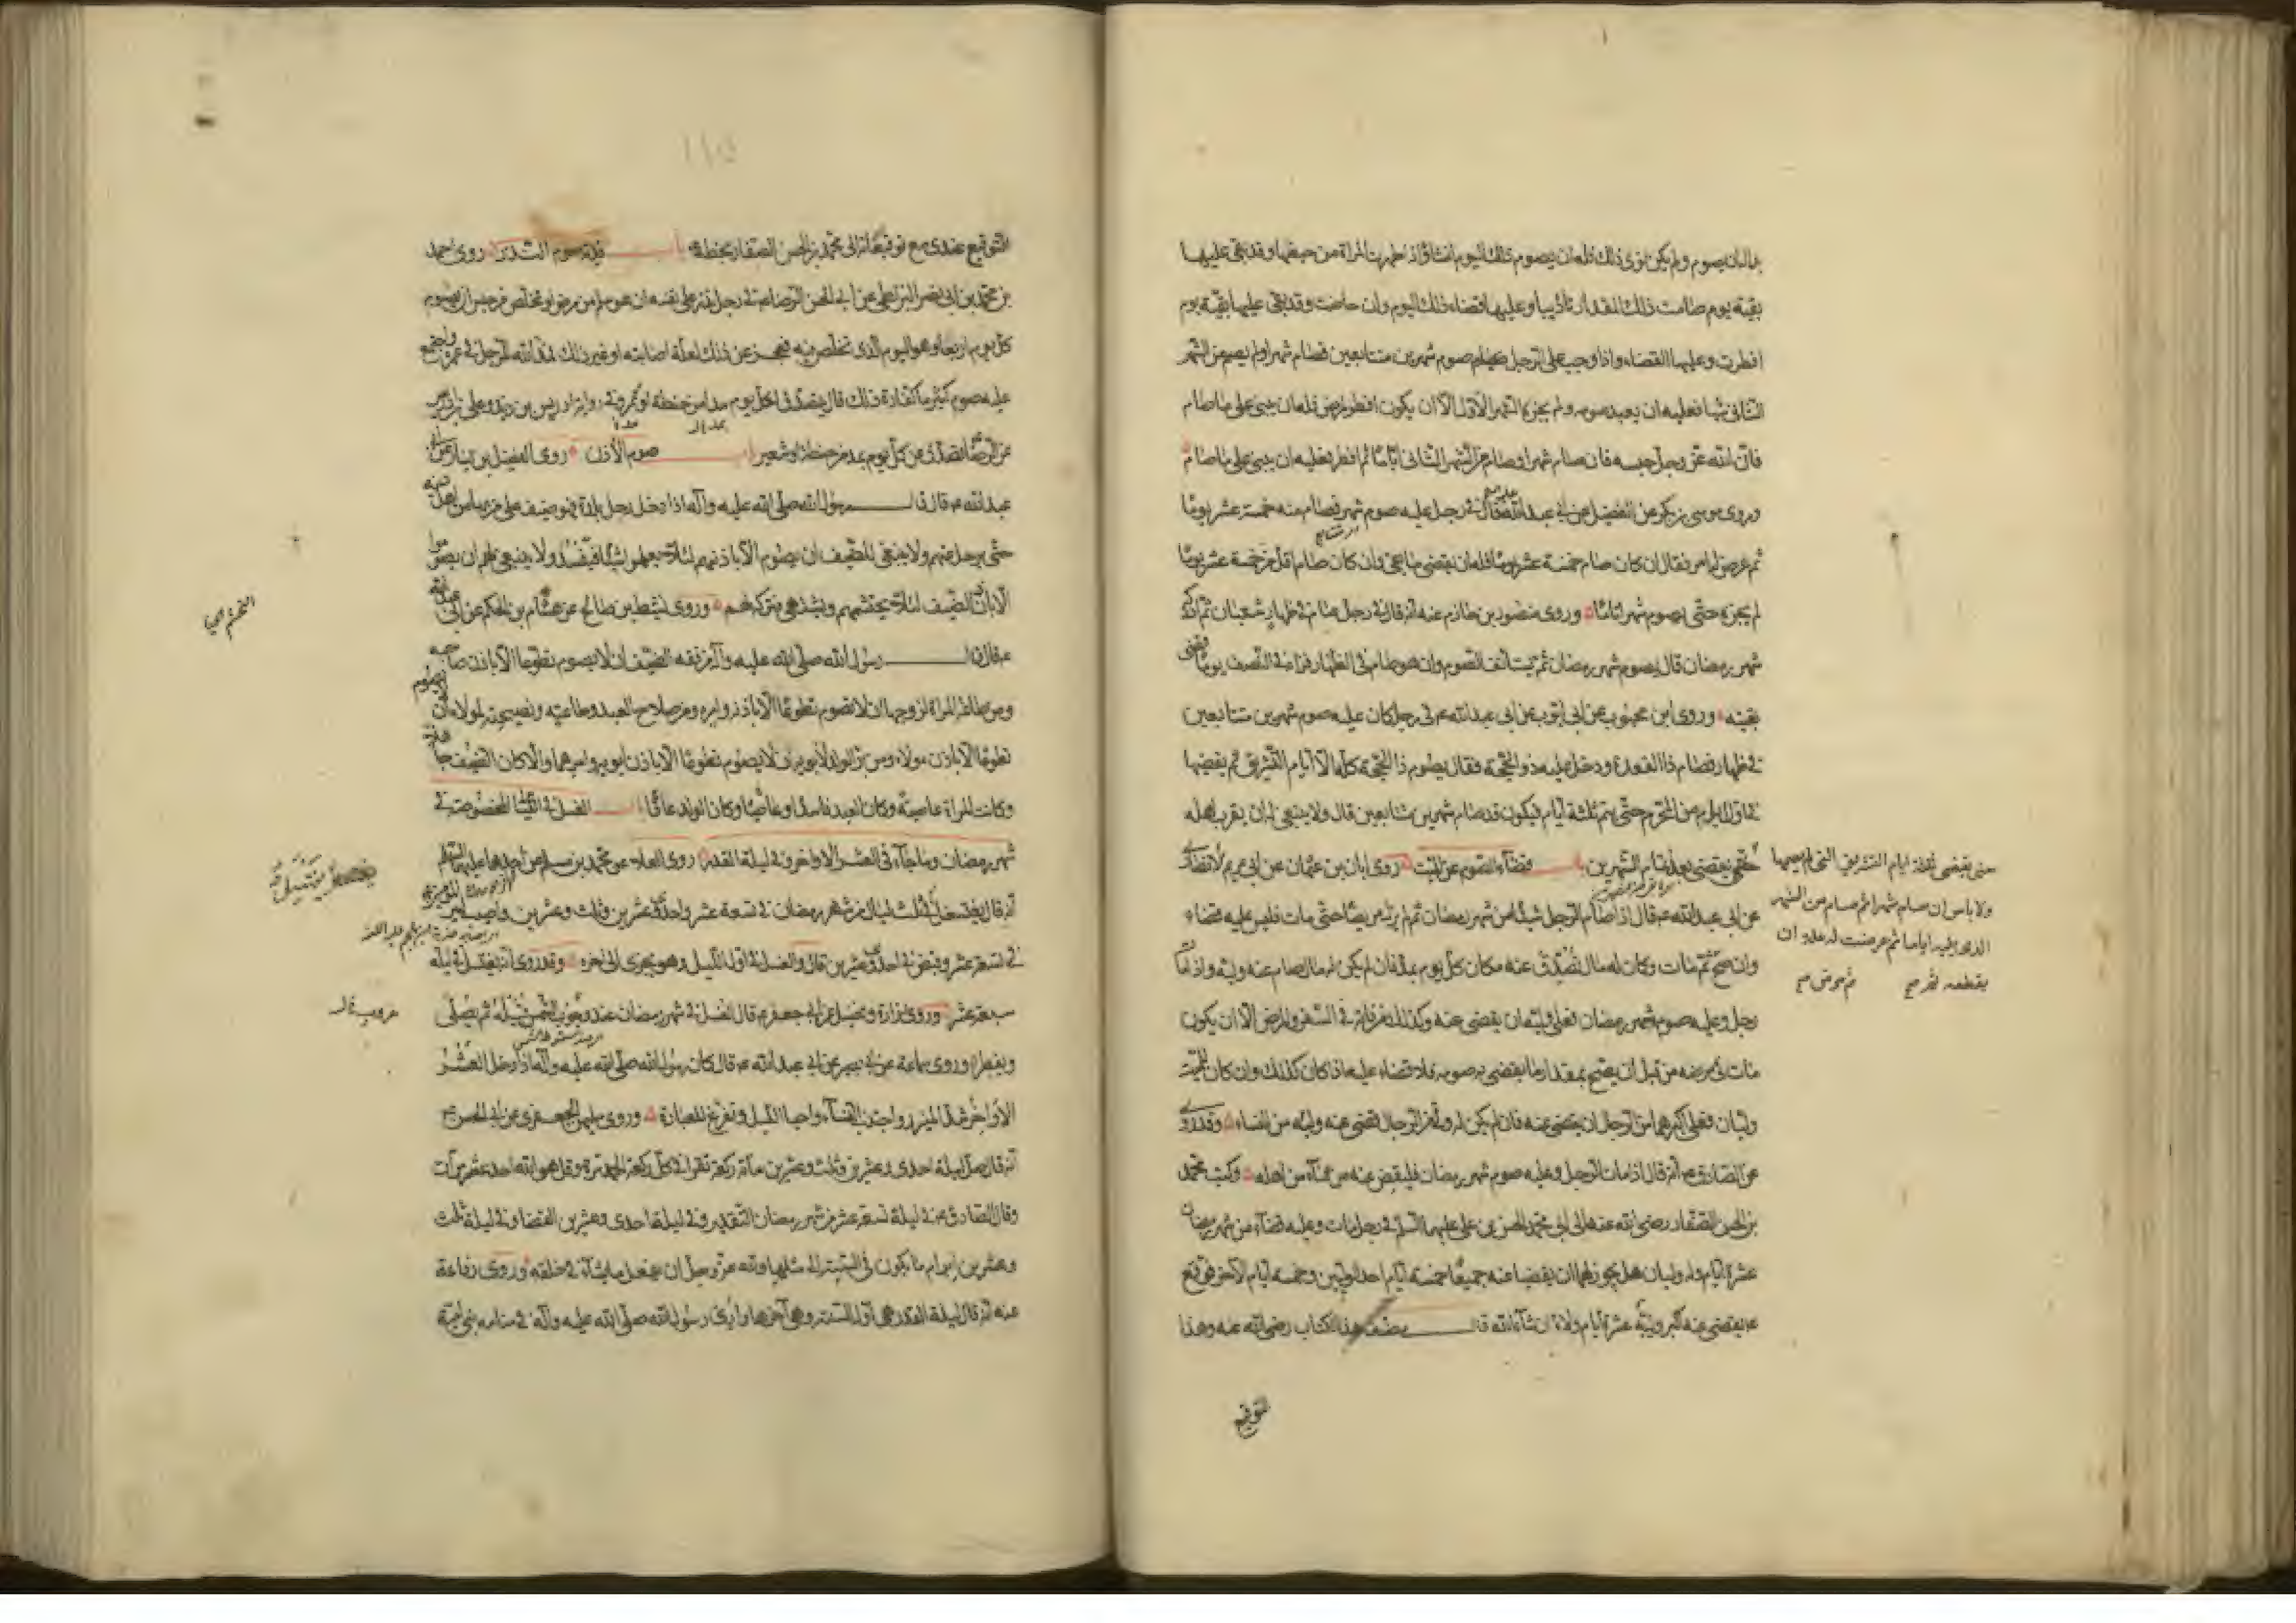 بدا له ان يصوم ولم يكن نوى ذلك فله ان يصوم ذلك اليوم ان شاء واذا طهرت المراة من حيضها وقد بقى عليها
بقية يوم صامت ذلك المقدار تاديبا وعليها قضاء ذلك اليوم وان حاضت وقد بقى عليها بقية يوم
افطرت وعليها القضاء واذا وجب على الرجل صوم شهرين متتابعين فصام شهرا ولم يصم من الشهر
الثانى شيئا فعليه ان يعيد صومه ولم يجزه الشهر الاول الا ان يكون افطر لمرض فله ان يبنى على ما صام
فان الله عز وجل حبسه فان صام شهرا وصام من الشهر الثانى اياما ثم افطر فعليه ان يبنى على ما صام
وروى موسى بن بكر عن الفضيل عن ابى عبد الله قال فى رجل عليه صوم شهر فصام منه خمسة عشر يوما
ثم عرض له امر فقال ان كان صام خمسة عشر يوما فله ان يقضى ما بقى وان كان صام اقل من خمسة عشر يوما
لم يجزه حتى يصوم شهرا تاما وروى منصور بن حازم عنه انه قال فى رجل صام فى ظهار شعبان ثم ادركه
شهر رمضان قال يصوم شهر رمضان ثم يستانف الصوم وان هو صام فى الظهار فزاد فى النصف يوما قضى
بقيته وروى ابن محبوب عن ابى ايوب عن ابى عبد الله ع فى رجل كان عليه صوم شهرين متتابعين
فى ظهار فصام ذا القعدة ودخل عليه ذو الحجة فقال يصوم ذا الحجة كله الا ايام التشريق ثم يقضيها
فى اول ايام من المحرم حتى يتم ثلثة ايام فيكون قد صام شهرين متتابعين قال ولا ينبغى له ان يقرب اهله
حتى يقضى ثلثة ايام التشريق التى لم يصمها
ولا باس ان صام شهرا ثم صام من الشهر
الذى يليه اياما ثم عرضت له علة ان
يقطعه
حتى يقضى بعد تمام الشهرين باب قضاء الصوم عن الميت روى ابان بن عثمان عن ابى مريم الانصارى
عن ابى عبد الله ع قال اذا صام الرجل شيئا من شهر رمضان ثم لم يزل مريضا حتى مات فليس عليه قضاء
وان صح ثم مات وكان له مال تصدق عنه مكان كل يوم بمد فان لم يكن له مال صام عنه وليه واذا مات
رجل وعليه صوم شهر رمضان فعلى وليه ان يقضى عنه وكذلك من فاته فى السفر والمرض الا ان يكون
مات فى مرضه من قبل ان يصح بمقدار ما يقضى به صومه فلا قضاء عليه اذا كان كذلك وان كان للميت
وليان فعلى اكبرهما من الرجال ان يقضى عنه فان لم يكن له ولى من الرجال قضى عنه وليه من النساء وقد روى
عن الصادق ع انه قال اذا مات الرجل وعليه صوم شهر رمضان فليقض عنه من شاء من اهله وكتب محمد
بن الحسن الصفار رضى الله عنه الى ابى محمد الحسن بن على عليهما السلم فى رجل مات وعليه قضاء من شهر رمضان
عشرة ايام وله وليان هل يجوز لهما ان يقضيا عنه جميعا خمسة ايام احد الوليين وخمسة ايام الاخر فوقع
ع يقضى عنه اكبر ولييه عشرة ايام ولاء ان شاء الله قال مصنف هذا الكتاب رضى الله عنه وهذا
التوقيع
التوقيع عندى مع توقيعاته الى محمد بن الحسن الصفار بخطه باب فدية صوم النذر روى احمد
بن محمد بن ابى نصر البزنطى عن ابى الحسن الرضا ع فى رجل نذر على نفسه ان هو سلم من مرض او تخلص من حبس ان يصوم
كل يوم اربعاء وهو اليوم الذى تخلص فيه فعجز عن ذلك لعلة اصابته او غير ذلك فمد الله للرجل فى عمره واجتمع
عليه صوم كثير ما كفارة ذلك قال يتصدق لكل يوم مدا من حنطة او تمر وفى رواية ادريس بن زيد وعلى بن ادريس
عن الرضا ع تصدق عن كل يوم بمد من حنطة او شعير باب صوم الاذن روى الفضيل بن يسار عن ابى
عبد الله ع قال قال رسول الله صلى الله عليه وآله اذا دخل رجل بلدة فهو ضيف على من بها من اهل دينه
حتى يرحل عنهم ولا ينبغى للضيف ان يصوم الا باذنهم لئلا يعملوا شيئا فيفسد ولا ينبغى لهم ان يصوموا
الا باذن الضيف لئلا يحتشمهم ويشتهى فيتركه لهم وروى نشيط بن صالح عن هشام بن الحكم عن ابى عبد الله
ع قال قال رسول الله صلى الله عليه وآله من فقه الضيف ان لا يصوم تطوعا الا باذن صاحبه
ومن طاعة المراة لزوجها ان لا تصوم تطوعا الا باذنه وامره ومن صلاح العبد وطاعته ونصيحته لمولاه ان لا يصوم
تطوعا الا باذن مولاه ومن بر الولد لابويه ان لا يصوم تطوعا الا باذن ابويه وامرهما والا كان الضيف جاهلا
وكانت المراة عاصية وكان العبد فاسدا وعاصيا وكان الولد عاقا باب الغسل فى الليالى المخصوصة فى
شهر رمضان وما جاء فى العشر الاواخر وفى ليلة القدر روى العلاء عن محمد بن مسلم عن احدهما عليهما السلم
انه قال يغتسل فى ثلث ليال من شهر رمضان فى تسعة عشر واحدى وعشرين وثلث وعشرين واصيب امير المؤمنين
فى تسع عشرة وقبض فى احدى وعشرين قال والغسل فى اول الليل وهو يجزى الى اخره وقد روى انه يغتسل فى ليلة
سبع عشرة وروى زرارة وفضيل عن ابى جعفر ع قال الغسل فى شهر رمضان عند وجوب الشمس قبيله ثم يصلى
ويفطر وروى سماعة عن ابى بصير عن ابى عبد الله ع قال كان رسول الله صلى الله عليه وآله اذا دخل العشر
الاواخر شد الميزر واجتنب النساء واحيا الليل وتفرغ للعبادة وروى سليمن الجعفرى عن ابى الحسن ع
انه قال صل ليلة احدى وعشرين وثلث وعشرين مائة ركعة تقرا فى كل ركعة الحمد مرة وقل هو الله احد عشر مرات
وقال الصادق ع فى ليلة تسع عشرة من شهر رمضان التقدير وفى ليلة احدى وعشرين القضاء وفى ليلة ثلث
وعشرين ابرام ما يكون فى السنة الى مثلها ولله عز وجل ان يفعل ما يشاء فى خلقه وروى رفاعة
عنه انه قال ليلة القدر هى اول السنة وهى آخرها وارى رسول الله صلى الله عليه وآله فى منامه بنى امية